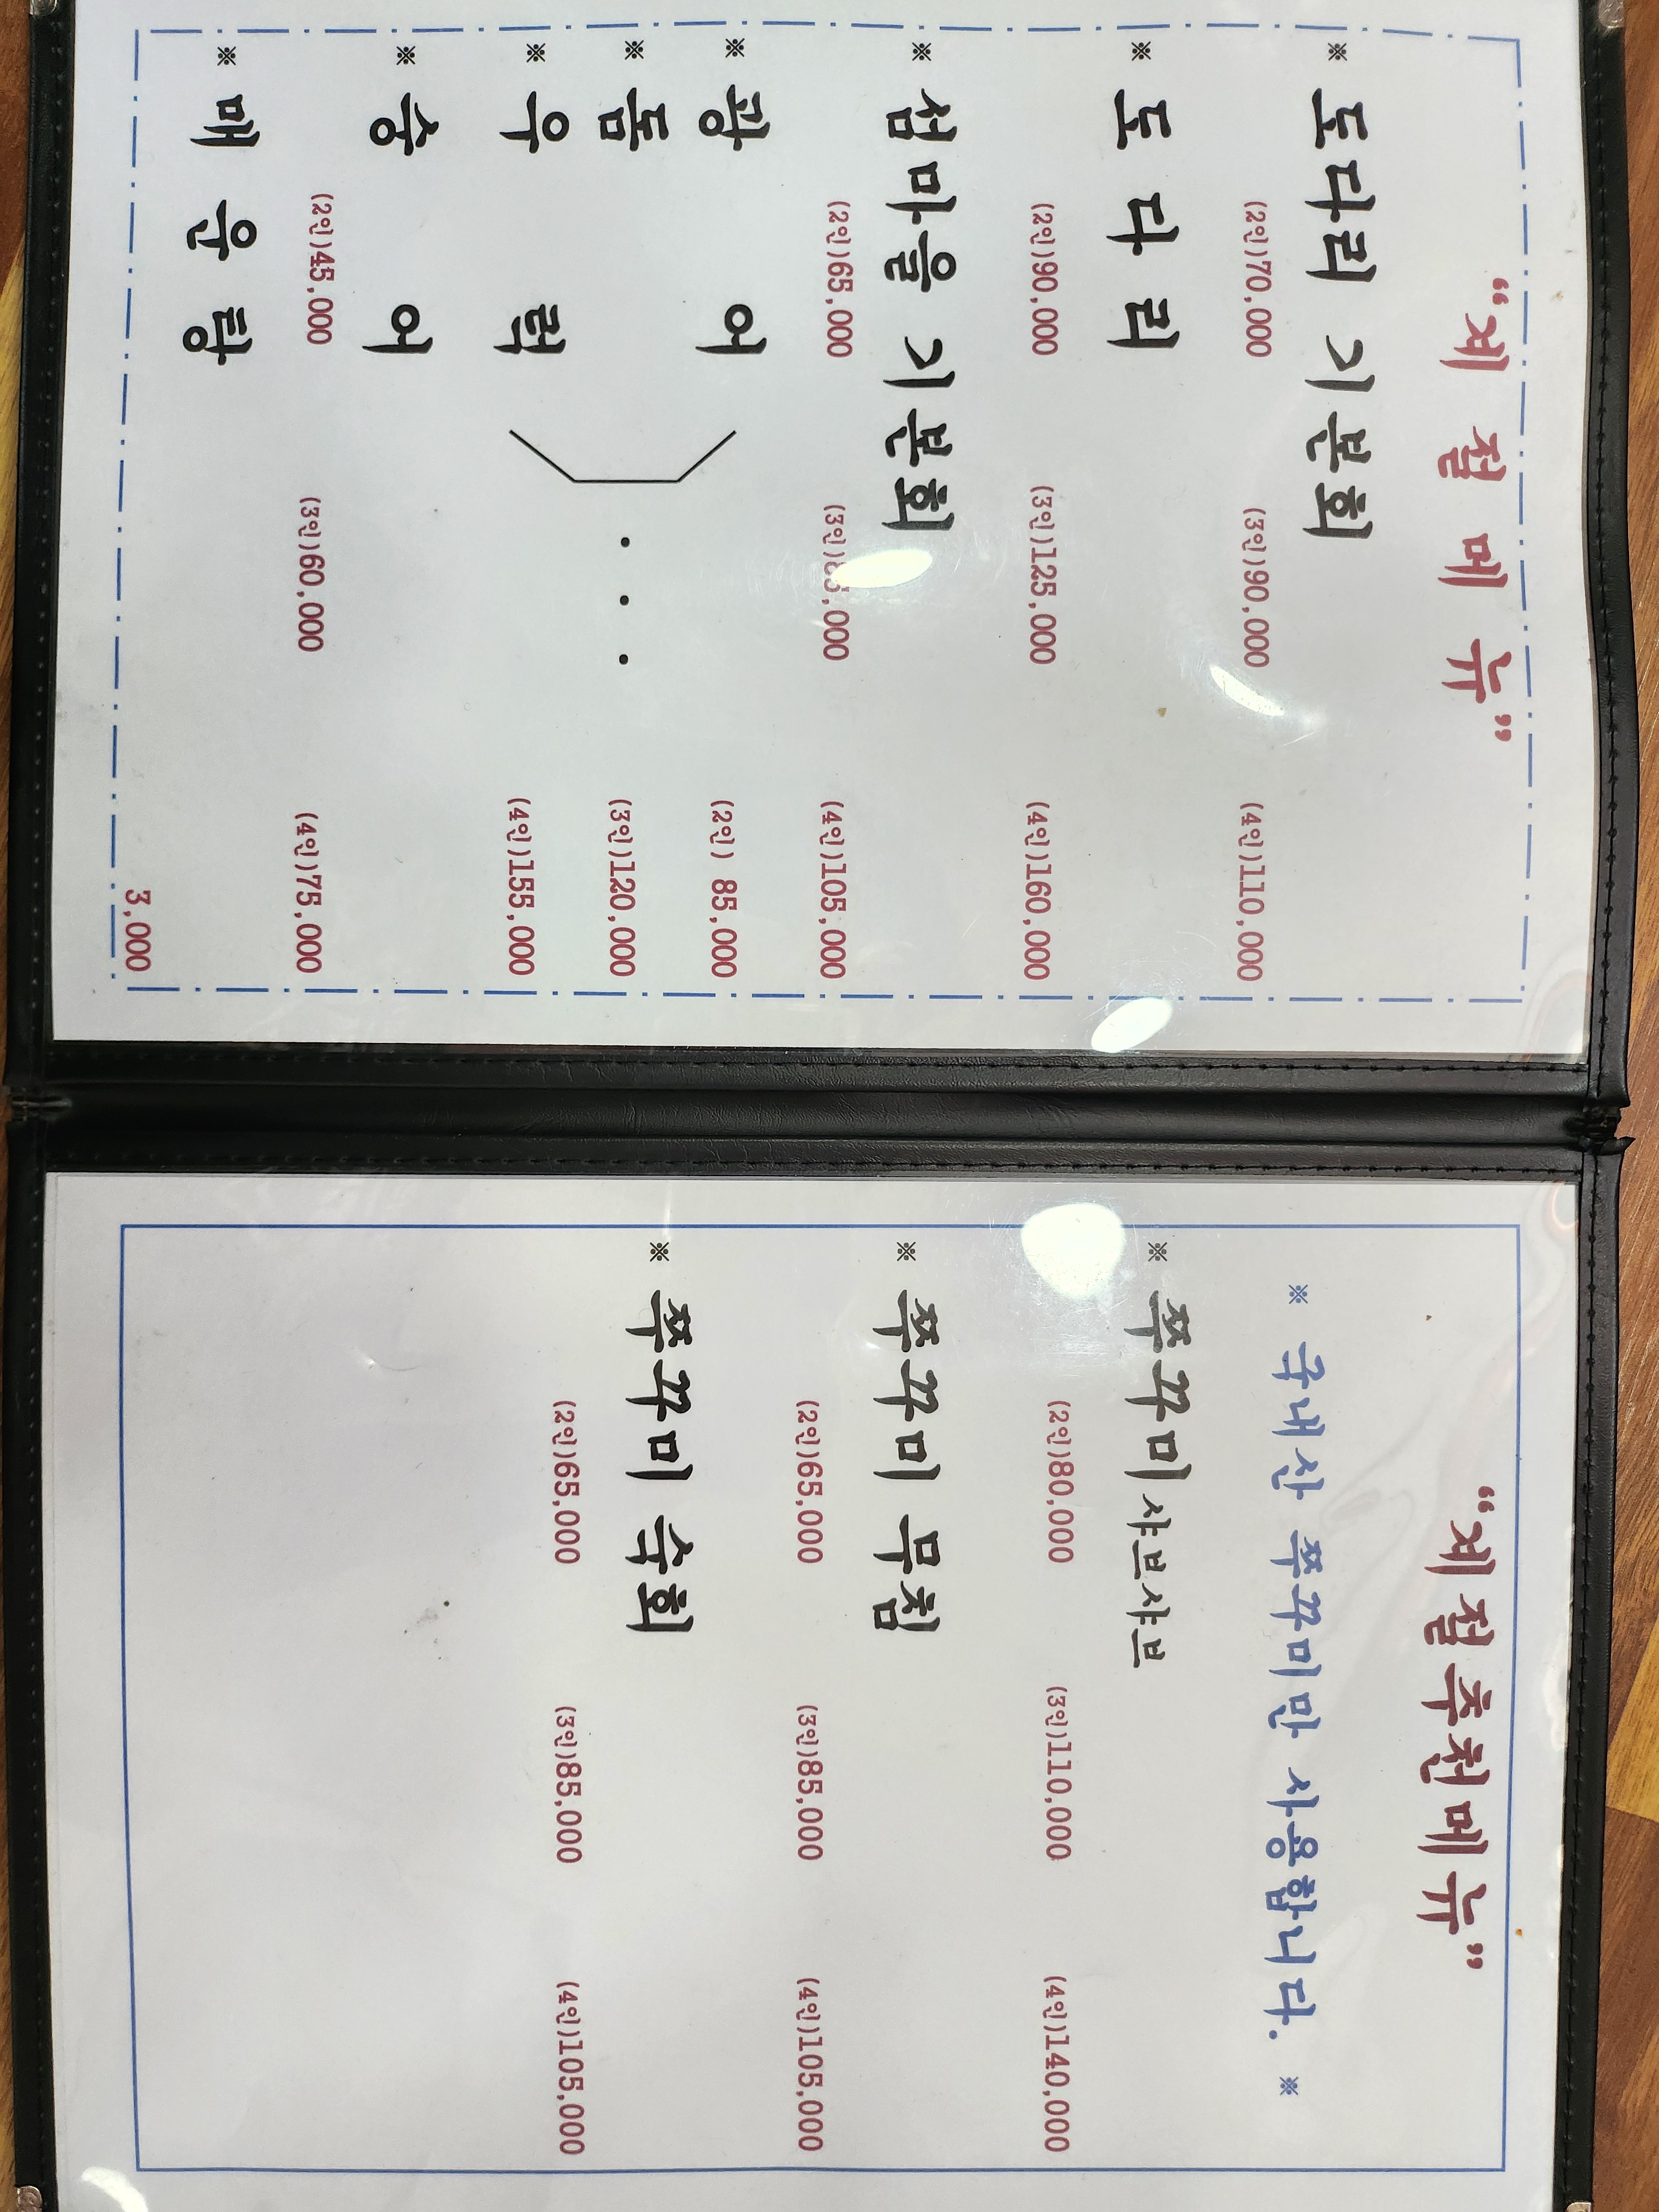 “제 철 메 뉴”
※ 도다리 기본회
(2인)70,000 (3인)90,000 (4인)110,000
※ 도 다 리
(2인)90,000 (3인)125,000 (4인)160,000
※ 섬마을 기본회
(2인)65,000 (3인)85,000 (4인)105,000
※ 광 어 (2인) 85,000
※ 돔 ... (3인)120,000
※ 우 럭 (4인)155,000
※ 숭 어
(2인)45,000 (3인)60,000 (4인)75,000
※ 매 운 탕
3,000
“제철추천메뉴”
※ 국내산 쭈꾸미만 사용합니다. ※
※ 쭈꾸미 샤브샤브
(2인)80,000 (3인)110,000 (4인)140,000
※ 쭈꾸미 무침
(2인)65,000 (3인)85,000 (4인)105,000
※ 쭈꾸미 숙회
(2인)65,000 (3인)85,000 (4인)105,000